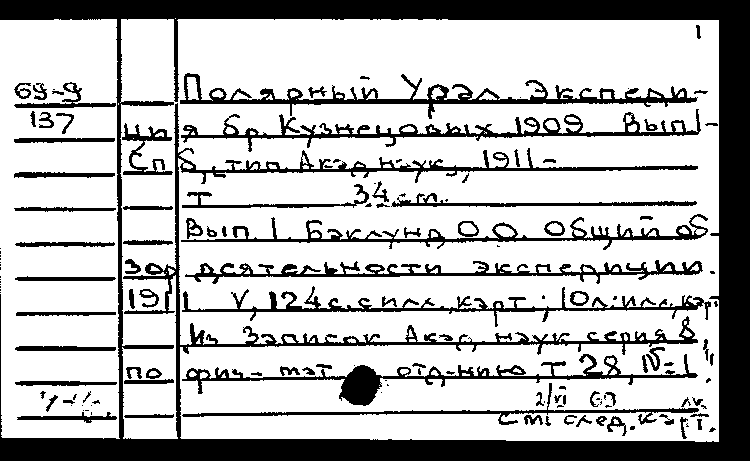 1
69-9 Полярный Урал. Экспеди-
137 ция бр. Кузнецовых 1909. Вып 1-
Спб, тип. Акад. наук, 1911-
т 34 см.
Вып. 1. Баклунд О.О. Общий об-
зор деятельности экспедиции.
1911 V, 124 с. с илл., карт.; 10 л. илл., карт
"Из Записок Акад. наук, серия 8,
по физ.-мат отд-нию, т 28, №1"
2/VI 69
См. след. карт.